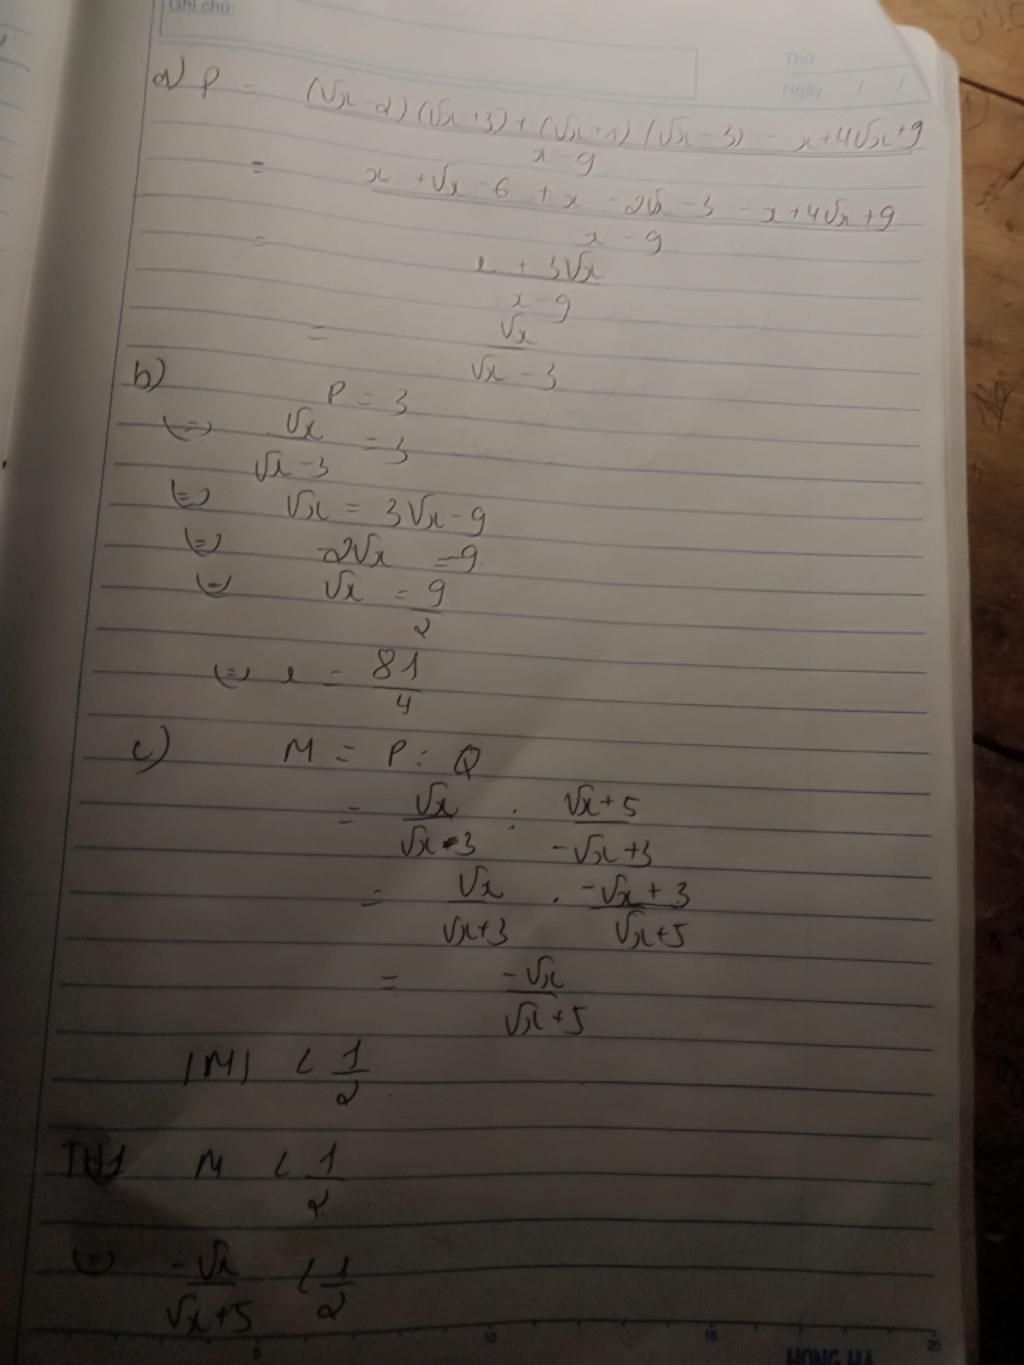 Ghi chú:
Thứ
Ngày / /
a) P = (√x - 2)(√x + 3) + (√x + 1)(√x - 3) - x + 4√x + 9
x - 9
= x + √x - 6 + x - 2√x - 3 - x + 4√x + 9
x - 9
= x + 3√x
x - 9
= √x
√x - 3
b) P = 3
(=) √x = 3
√x - 3
(=) √x = 3√x - 9
(=) -2√x = -9
(=) √x = 9
2
(=) x = 81
4
c) M = P : Q
= √x : √x + 5
√x - 3 -√x + 3
= √x . -√x + 3
√x + 3 √x + 5
= -√x
√x + 5
|M| < 1
2
TH1 M < 1
2
(=) -√x < 1
√x + 5 2
5 10 15 20
HONG HA